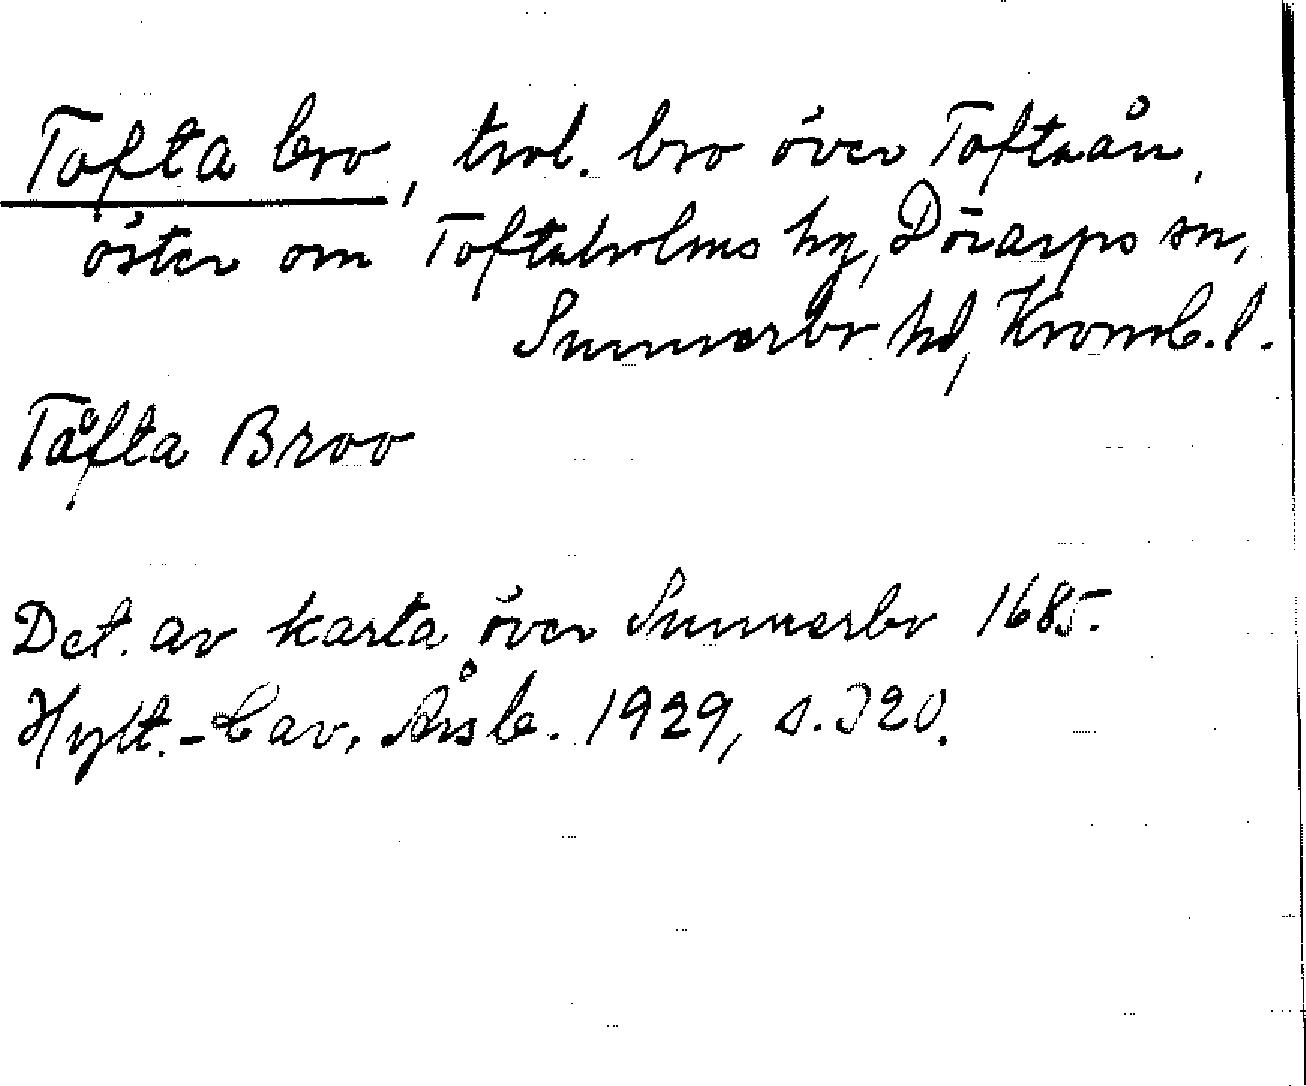 Tofta bro, trol. bro över Toftaån,
öster om Toftaholms hg, Dörarps sn,
Sunnerbo hd, Kronob. l.
Tåfta Broo
Det. av karta över Sunnerbo 1685.
Hylt.-Cav. Årsb. 1929, s. 320.